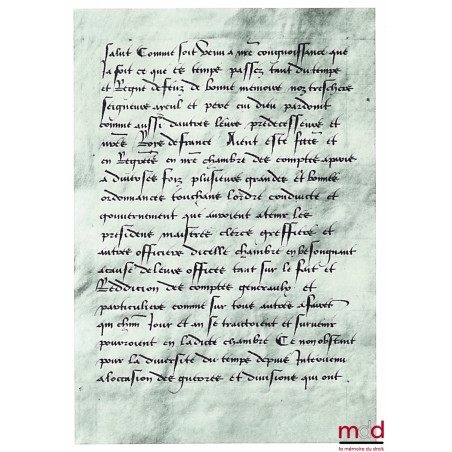 salut Comme soit venu a nre congnoissance que
ja soit ce que ce temps passez tant du temps
et Regne de feuz de bonne memoire noz treschers
seigneurs ayeul et pere cui dieu pardoint
comme aussi dautres leurs predecesseurs et
nres Roys de france Aient este faictes et
en Registrees en nre chambre des comptes apures
a diverses foiz plusieurs grandes et bonnes
ordonnances touchans lordre conduicte et
gouvernement que auroient a tenir les
president maistres clercs greffiers et
autres officiers dicelle chambre en besongnant
a cause de leurs offices tant sur le fait et
Reddicion des comptes generaulx et
particuliers comme sur tous autres affaires
qui chun Jour et an se traictoient et survenir
pourroient en ladicte chambre Ce nonobstant
pour la diversite du temps depuis Intervenu
a loccasion des guerres et divisions qui ont
mdd
la mémoire du droit